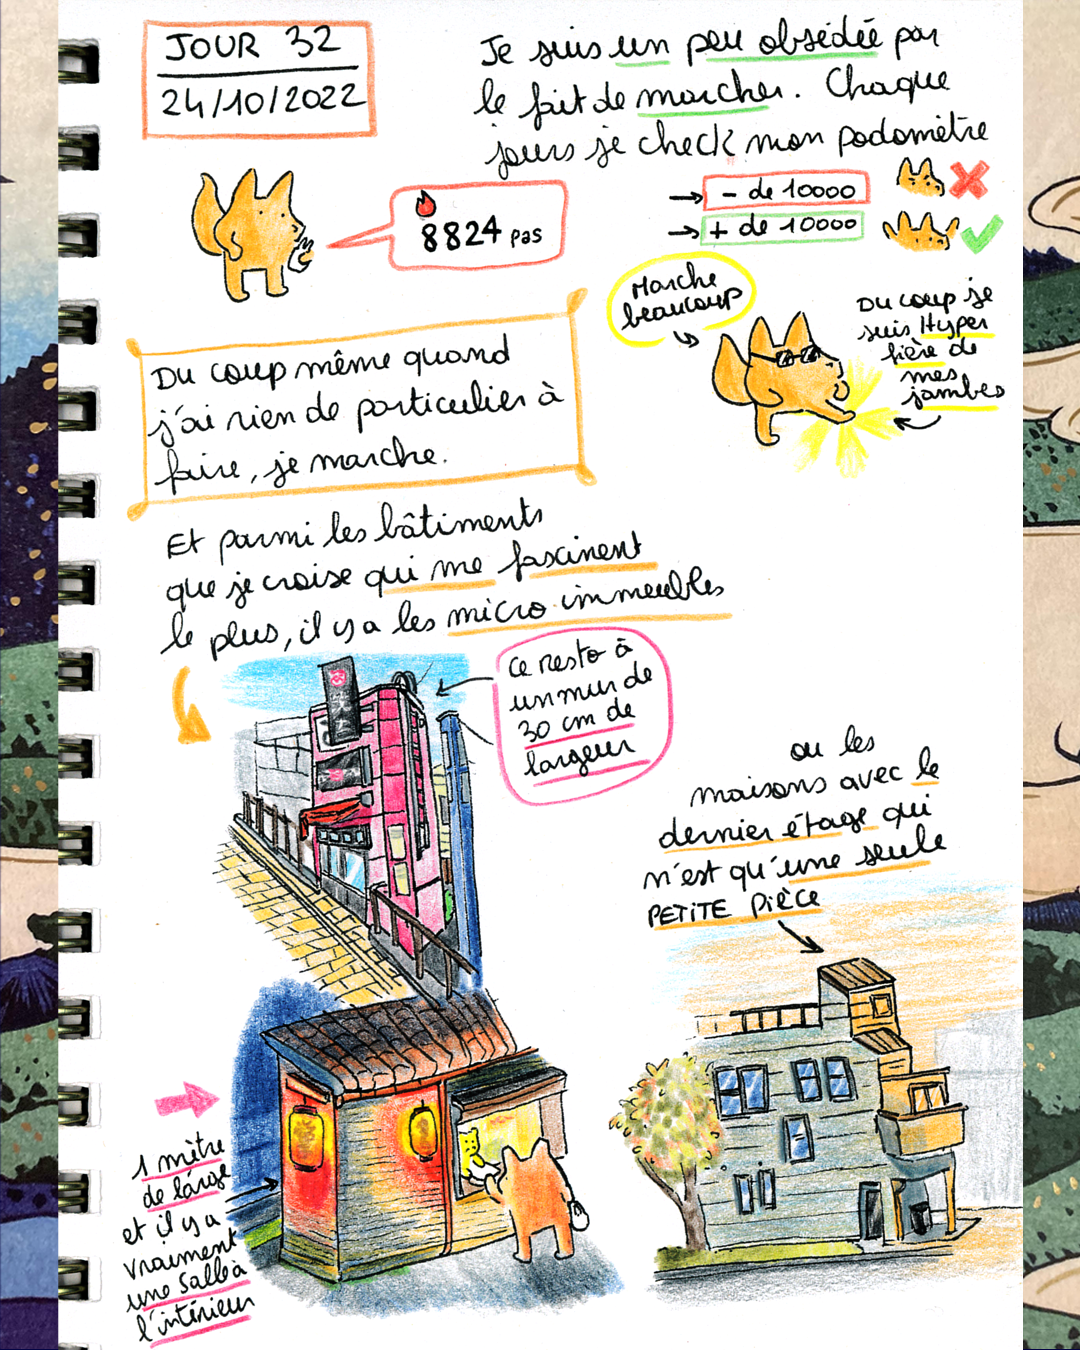 JOUR 32
24/10/2022
Je suis un peu obsédée par
le fait de marcher. Chaque
jours je check mon podomètre
→ - de 10000
→ + de 10000
8824 pas
Marche
beaucoup
Du coup je
suis Hyper
fière de
mes
jambes
Du coup même quand
j'ai rien de particulier à
faire, je marche.
Et parmi les bâtiments
que je croise qui me fascinent
le plus, il y a les micro immeubles
Ce resto à
un mur de
30 cm de
largeur
ou les
maisons avec le
dernier étage qui
n'est qu'une seule
PETITE PIÈCE
1 mètre
de large
et il y a
vraiment
une salle à
l'intérieur